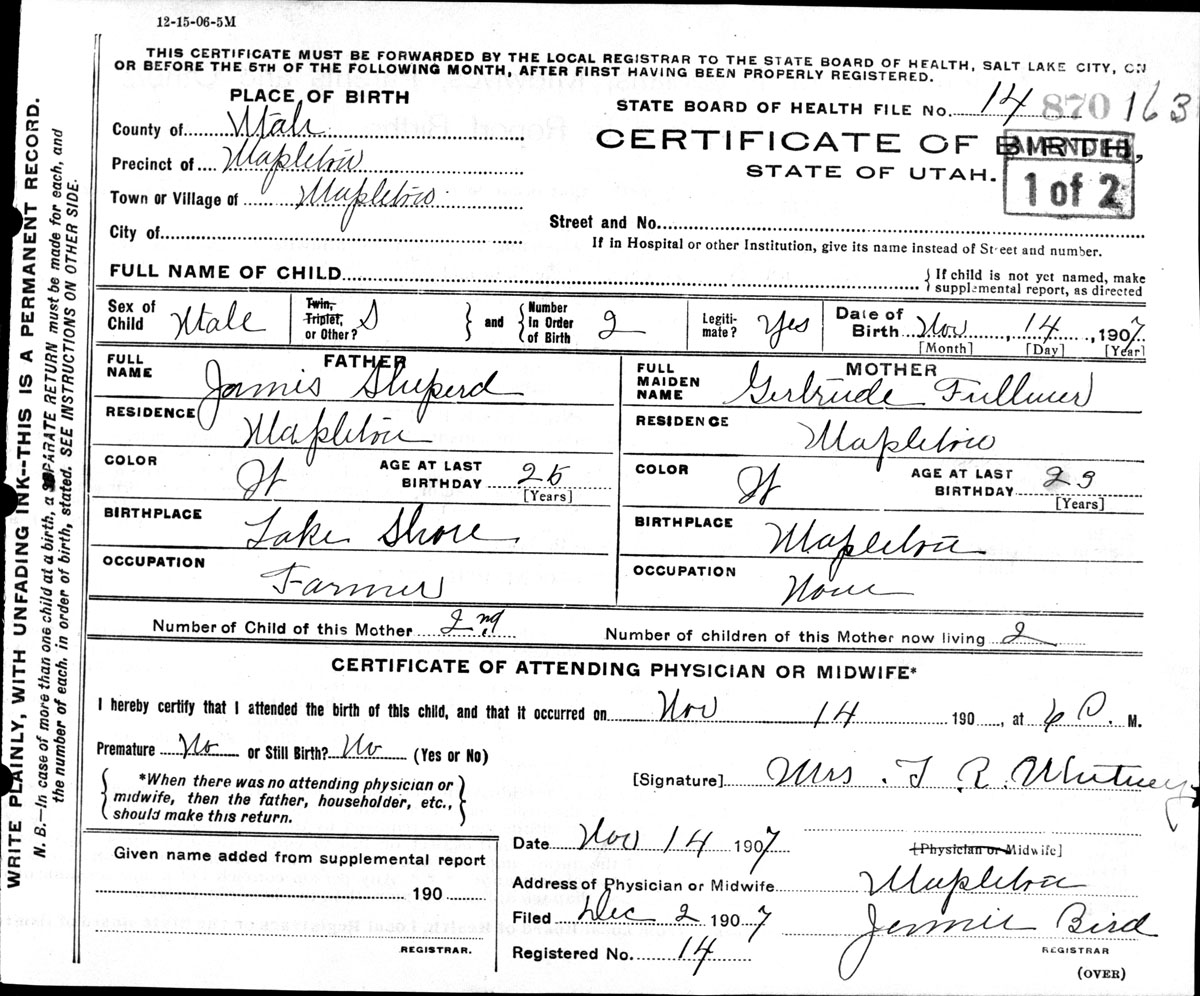 12-15-06-5M
THIS CERTIFICATE MUST BE FORWARDED BY THE LOCAL REGISTRAR TO THE STATE BOARD OF HEALTH, SALT LAKE CITY, ON
OR BEFORE THE 5TH OF THE FOLLOWING MONTH, AFTER FIRST HAVING BEEN PROPERLY REGISTERED.
WRITE PLAINLY, WITH UNFADING INK--THIS IS A PERMANENT RECORD.
N. B.--In case of more than one child at a birth, a SEPARATE RETURN must be made for each, and
the number of each, in order of birth, stated. SEE INSTRUCTIONS ON OTHER SIDE.
PLACE OF BIRTH
County of Utah
Precinct of Mapleton
Town or Village of Mapleton
City of
STATE BOARD OF HEALTH FILE No. 14 870 163
CERTIFICATE OF BIRTH,
AMENDED
STATE OF UTAH.
1 of 2
Street and No.
If in Hospital or other Institution, give its name instead of Street and number.
FULL NAME OF CHILD
If child is not yet named, make
supplemental report, as directed
Sex of Child Male
Twin, Triplet, or Other? S and Number In Order of Birth 2
Legiti-mate? Yes
Date of Birth Nov 14, 1907
[Month] [Day] [Year]
FATHER
FULL NAME James Sheperd
RESIDENCE Mapleton
COLOR W AGE AT LAST BIRTHDAY 25
[Years]
BIRTHPLACE Lake Shore
OCCUPATION Farmer
MOTHER
FULL MAIDEN NAME Gertrude Fullmer
RESIDENCE Mapleton
COLOR W AGE AT LAST BIRTHDAY 23
[Years]
BIRTHPLACE Mapleton
OCCUPATION None
Number of Child of this Mother 2nd Number of children of this Mother now living 2
CERTIFICATE OF ATTENDING PHYSICIAN OR MIDWIFE*
I hereby certify that I attended the birth of this child, and that it occurred on Nov 14 190 , at 6 P. M.
Premature No or Still Birth? No (Yes or No)
*When there was no attending physician or
midwife, then the father, householder, etc.,
should make this return.
[Signature] Mrs. Whitney
[Physician or Midwife]
Given name added from supplemental report
190
REGISTRAR.
Date Nov 14 1907
Address of Physician or Midwife Mapleton
Filed Dec 2 1907 Jennie Bird
REGISTRAR
Registered No. 14
(OVER)